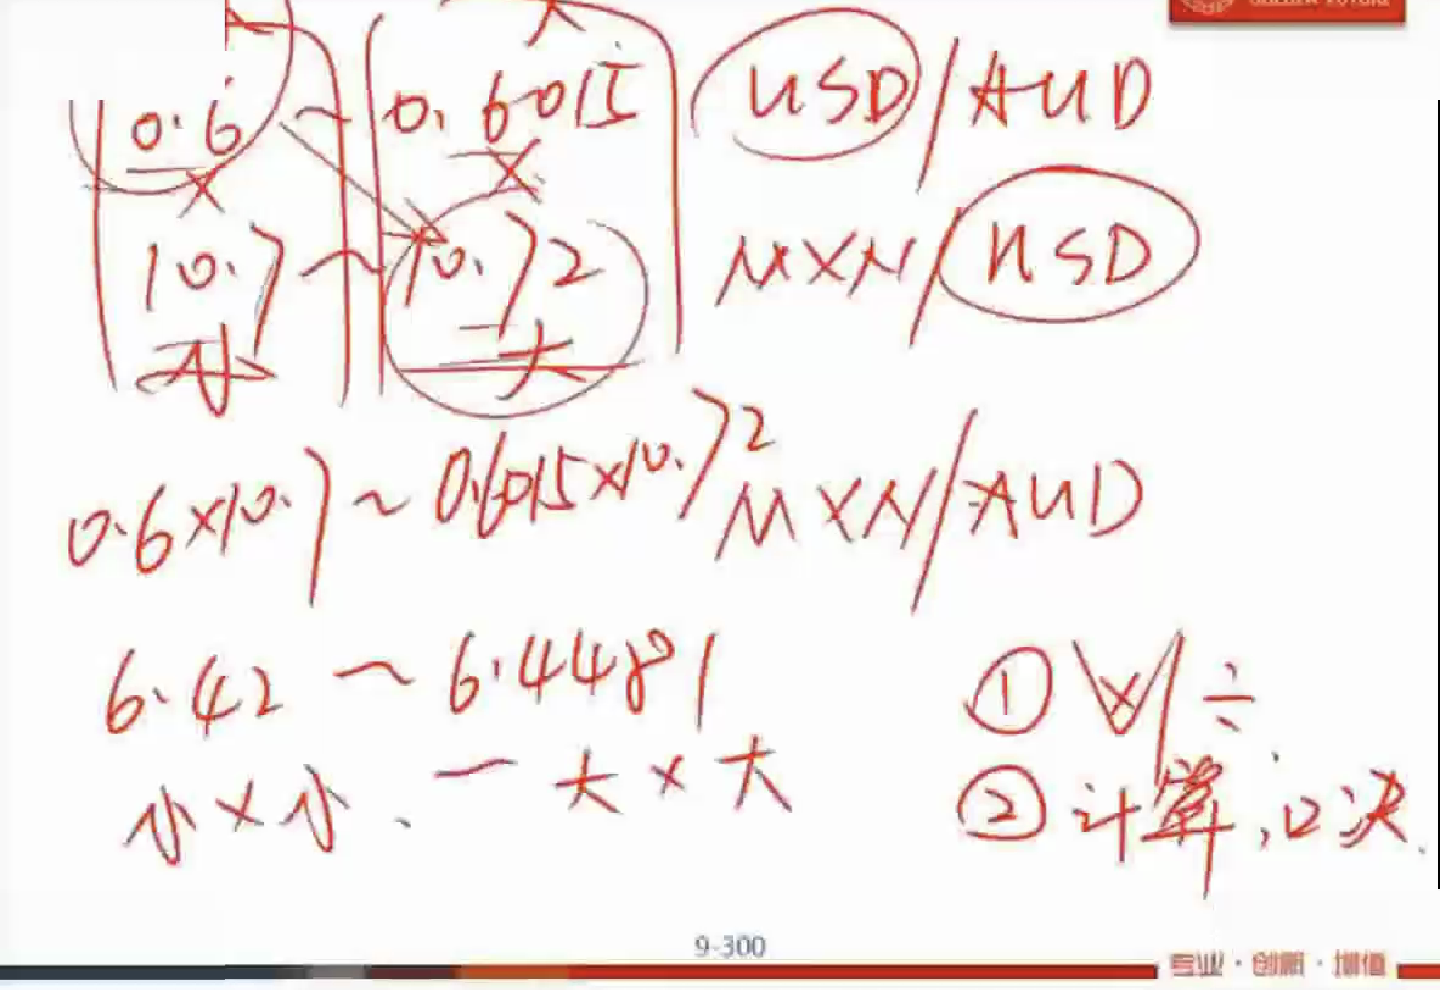 大
0.6 ~ 0.6015 USD/AUD
× ×
10.7 ~ 10.72 MXN/USD
小 大
0.6×10.7 ~ 0.6015×10.72 MXN/AUD
6.42 ~ 6.4481 ① ×/÷
小×小. — 大×大 ② 计算,口决.
9-300
专业·创新·增值